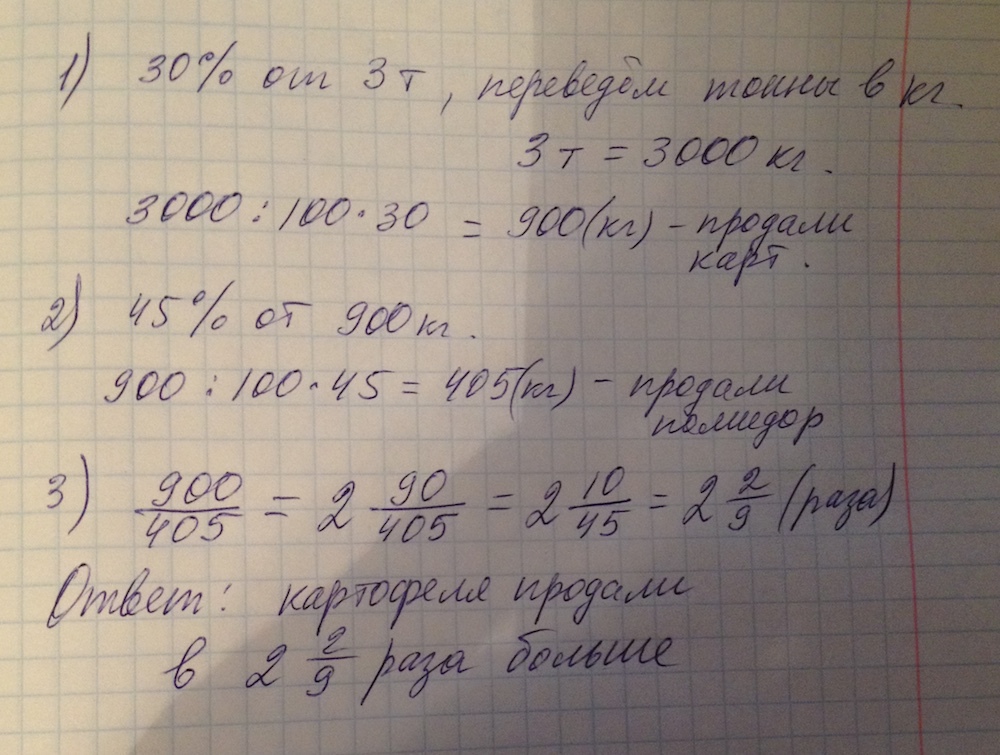 1) 30% от 3 т, переведём тонны в кг.
3 т = 3000 кг.
3000 : 100 · 30 = 900 (кг) – продали
карт.
2) 45% от 900 кг.
900 : 100 · 45 = 405 (кг) – продали
помидор
3) 900/405 = 2 90/405 = 2 10/45 = 2 2/9 (раза)
Ответ: картофеля продали
в 2 2/9 раза больше